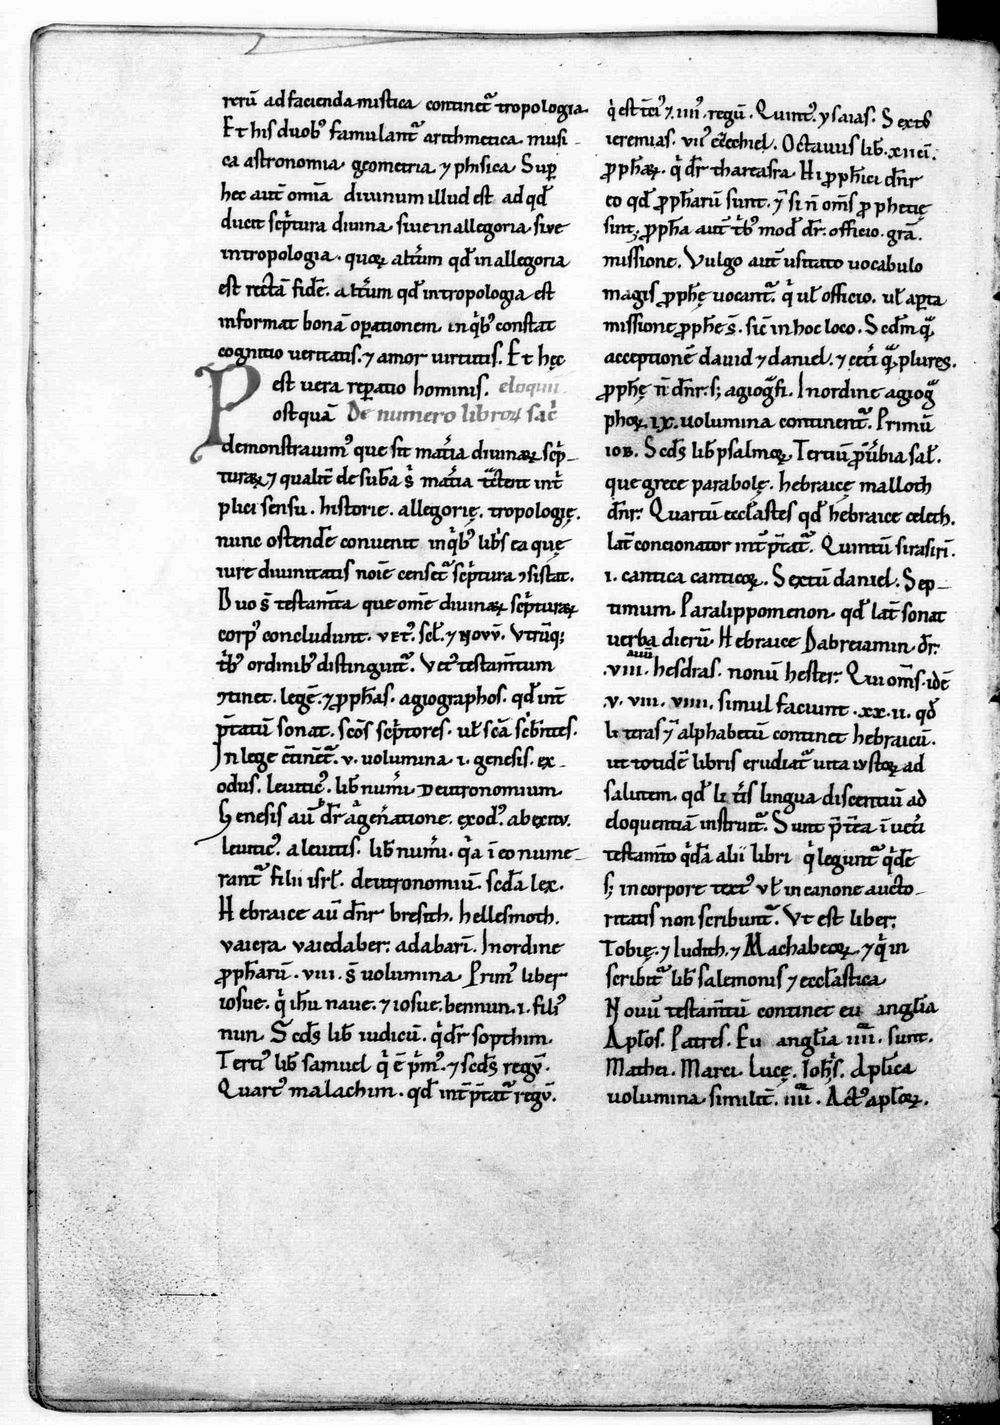 rerū ad facienda mistica continet᷑ tropologia.
Et his duob᷒ famulant᷑ arithmetica. musi-
ca astronomia geometria ⁊ phisica Sup̱
hec aut̄ om̄ia diuinum illud est ad qđ
ducit scp̄tura diuina. siue in allegoria. siue
in tropologia. quoꝝ alt̄um qđ in allegoria
est rectā fidē. alt̄um qđ in tropologia est
informat bonā oꝑationem. in qͥb᷒ constat
cognitio ueritatis. ⁊ amor uirtutis. Et hęc
est uera reꝑatio hominis. eloquii
Postquā De numero libroꝝ sac̄
demonstrauim᷒ que sit mat̄ia diuinaꝝ scp̄-
turaꝝ ⁊ qualit̄ de sub̄a s̄ mat̄ia t̄ctent int̄
plici sensu. historie. allegorię. tropologię.
nunc ostendē conuenit in qͥb᷒ lib̄s ea quę
iure diuinitatis noīe censet᷑ scp̄tura ꝯsistat.
Duo s̄ testam̄ta que om̄e diuinaꝝ scp̄turaꝝ
corp᷒ concludunt. VET᷒. scł. ⁊ NOVV̄. Vtrūq;
t̄b᷒ ordinib᷒ distinguit᷑. Vet᷒ testam̄tum
ꝯtinet. legē. ⁊ ꝓph̄as. agiographos. qđ int̄
p̄tatū sonat. sc̄os scp̄tores. uł sc̄a sc̄b̄ntes.
In lege ꝯ̄tinet᷑. v. uolumina .i. genesis. ex-
odus. leuitic᷒. lib̄ num̄i. Deutronomium
Genesis aū dr̄ a gen̄atione. exod᷒. ab exitu.
leuitic᷒. a leuitis. lib̄ num̄i. qͥa ī eo nume-
rant᷑ filii isrł. deutronomiū. sc̄da lex.
Hebraice aū dn̄r bresith. hellesmoth.
vaiera vaiedaber: adabarī. In ordine
ꝓph̄arū. viii. s̄ uolumina Prim᷒ liber
iosue. qͥ ih̄u naue. ⁊ iosue. bennun .i. fili᷒
nun. Sc̄ds lib̄ iudicū. qͥ dr̄ sopthim.
Terti᷒ lib̄ samuel qͥ ē p̄m᷒. ⁊ sc̄ds regū.
Quart᷒ malachim. qđ int̄p̄tat᷑ regū.
qͥ est t̄ci᷒ ⁊ .iiii᷒. regū. Quint᷒. ysaias. Sext᷒
ieremias. vii᷒ ezechiel. Octauus lib̄. xii eī.
ꝓph̄aꝝ. qͥ dr̄ thareasra Hi ꝓph̄ici dn̄r
eo qđ ꝓph̄arū sunt. ⁊ si n̄ om̄s ꝓphetię
sint. ꝓph̄a aut̄ t̄b᷒ mod̄ dr̄. officio. gr̄a.
missione. Vulgo aut̄ usitato uocabulo
magis ꝓph̄ę uocant᷑. qͥ uł officio. uł aꝑta
missione ꝓph̄e s̄. sic̄ in hoc loco. Sc̄dm qͣ
acceptionē dauid ⁊ daniel. ⁊ cet̄i qͣ plures.
ꝓph̄ę n̄ dn̄r. s; agiogͣfi. In ordine agiogͣ
phoꝝ. ix. uolumina continent᷑. Primū
iob. Sc̄ds lib̄ psalmoꝝ. Tertiū ꝓu̇bia sał.
que grece parabolę. hebraicę malloth
dn̄r. Quartū ecc̄lastes qđ hebraice celeth.
lat̄ concionator int̄p̄tat᷑. Quintū sirasirī.
.i. cantica canticoꝝ. Sextū daniel. Sep-
timum Paralippomenon. qđ lat̄ sonat
uerba dierū. Hebraice Dabreiamin dr̄.
.viii. hesdras. nonū hester. Qui om̄s. idē
.v. viii. viiii. simul faciunt .xx.ii. qđ
litteras ⁊̄ alphabetū continet hebraicū.
ut totidē libris erudiat᷑ uita iustoꝝ ad
salutem. qđ litt̄is lingua discentiū ad
eloquentiā instruit᷑. Sunt p̄t̄ea ī uet̄i
testam̄to qͥdā alii libri qͥ legunt᷑ qͥdē
s; in corpore text᷒ uł in canone aucto-
ritatis non scribunt᷑. Vt est liber.
Tobię. ⁊ Iudith. ⁊ Machabeoꝝ. ⁊ qͥ in
scribit᷑ lib̄ salemonis ⁊ ecc̄lastica
Nouū testam̄tū continet eu anglia
Apłos. Patres. Eu anglia iiii. sunt.
Mathei. Marci. Lucę. Ioh̄s. Apłica
uolumina similit̄. iiii. Act᷒ apłoꝝ.